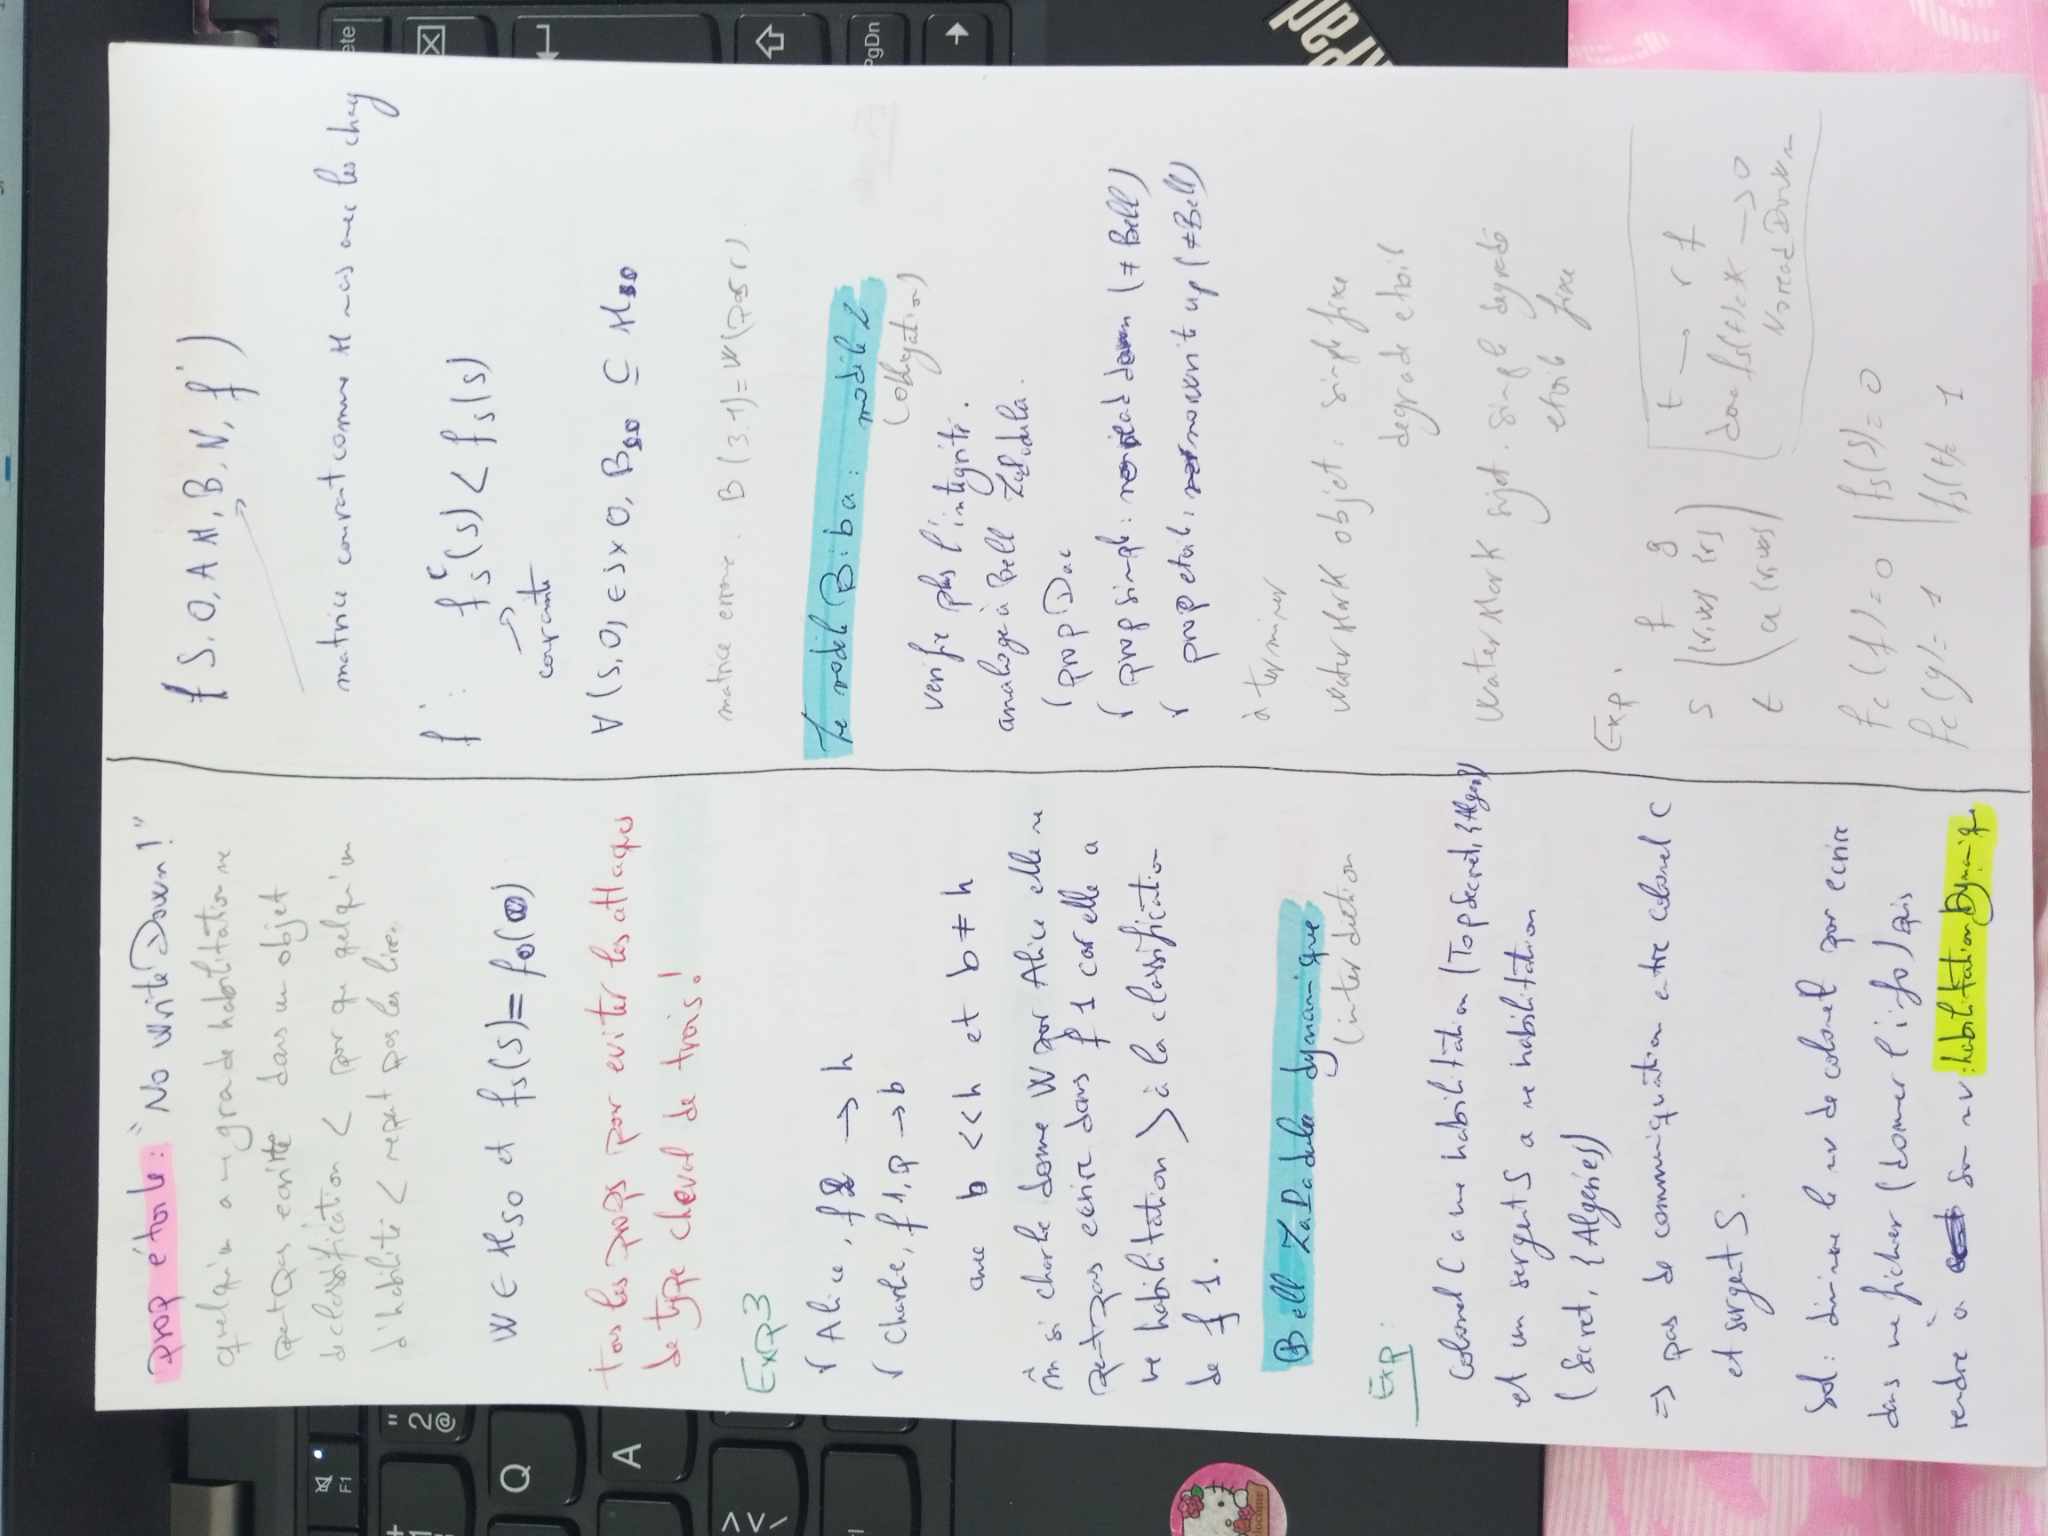 prop étoile: "No write Down!"
quelqu'un a une grade habilitation ne
peut pas ecrire dans un objet
de classification < por que quelqu'un
d'habilité < ne peut pas les lire.
W ∈ M_SO et f_s(S) = f_o(O)
tous les props por eviter les attaques
de type cheval de trois!
Exp3
Alice, f2 → h
Charlie, f1, p → b
avec b << h et b ≠ h
m̂ si charlie donne W por Alice elle ne
peut pas ecrire dans f1 car elle a
ne habilitation > à la classification
de f1.
Bell LaPadula dynamique
(interdiction
Exp:
colonel C a une habilitation (Top Secret, {Alger})
et un sergent S a ne habilitation
(Secret, {Algeries)
⇒ pas de communiquation entre colonel C
et sergent S.
Sol: diminue le nv de colonel por ecrire
dans ne fichier (donner l'info) puis
rendre à son nv: habilitation Dynamique
f S, O, A, M, B, N, f')
matrice courant comme M mais avec les chag
f': f_s^c(s) < f_s(s)
courante
∀(S,O) ∈ S×O, B_SO ⊆ M_SO
matrice erronée. B(3,1) = W (pas r).
Le modèle Biba: modèle 2
(obligation)
verifie plus l'integrité.
analogue à Bell LaPadula.
prop Dac
prop simple: no read down (≠ Bell)
prop etoile: no write up (≠ Bell)
à terminer
WaterMark objet: simple fixe
degrade etoile
WaterMark sujet. simple degradé
etoile fixe
Exp.
f g
s {r,w} {r}
t a {r,w}
t → r f
donc f_s(t) → 0
No read Down
f_c(f) = 0 | f_s(S) = 0
f_c(g) = 1 | f_s(t) = 1
F1
"
2
@
Q
A
>
<
PgDn
elcome
Pad